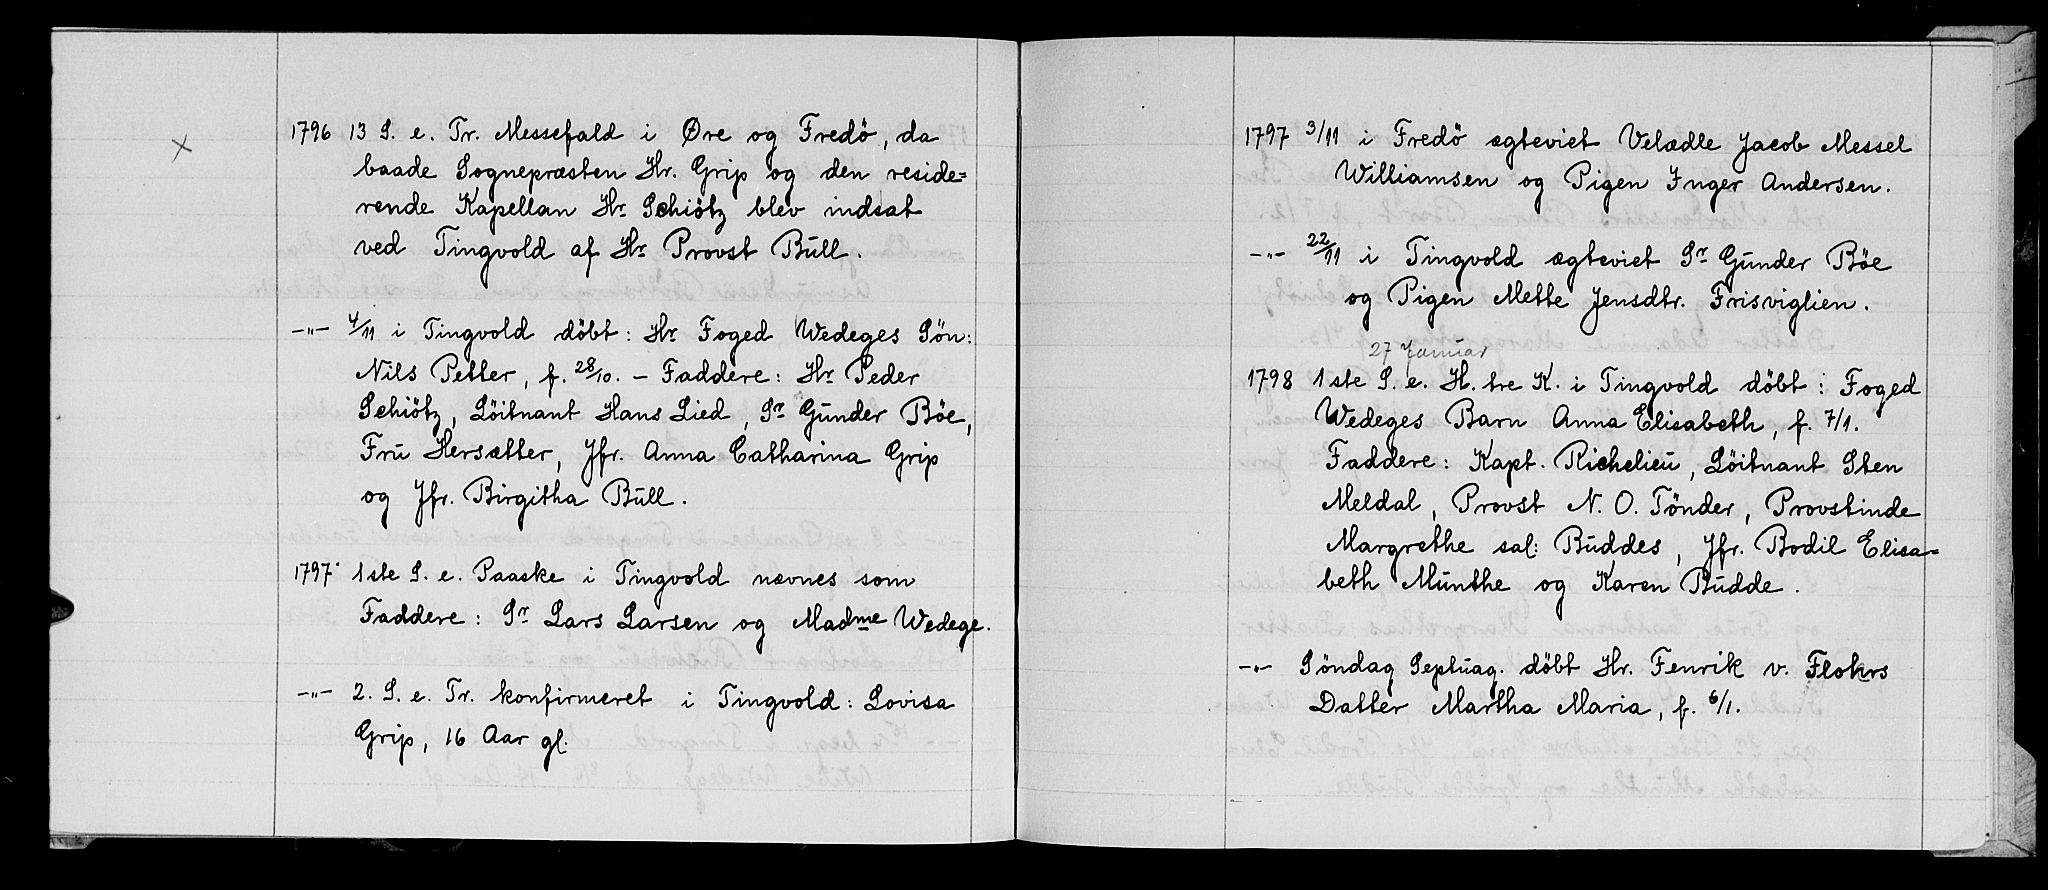 1796 13 S. e. Tr. Messefald i Øre og Fredö, da
baade Sognepræsten Hr. Grip og den reside=
rende Kapellan Hr. Schiötz blev indsat
ved Tingvold af Hr. Provst Bull.
-"- 4/11 i Tingvold döbt: Hr. Foged Wedeges Sön:
Nils Petter, f. 28/10. - Faddere: Hr. Peder
Schiötz, Löitnant Hans Lied, Sr. Gunder Böe,
Fru Hersætter, Jfr. Anna Catharina Grip
og Jfr. Birgitha Bull.
1797 1ste S. e. Paaske i Tingvold nævnes som
Faddere: Sr. Lars Larsen og Madme Wedege.
-"- 2. S. e. Tr. konfirmeret i Tingvold: Lovisa
Grip, 16 Aar gl.
1797 3/11 i Fredö ægteviet Velædle Jacob Messel
Williamsen og Pigen Inger Andersen.
-"- 22/11 i Tingvold ægteviet Sr. Gunder Böe
og Pigen Mette Jensdtr. Frisviglien.
27 Januar
1798 1ste S. e. H. tre K. i Tingvold döbt: Foged
Wedeges Barn Anna Elisabeth, f. 7/1.
Faddere: Kapt. Richelieu, Löitnant Sten
Meldal, Provst N. O. Tönder, Provstinde
Margrethe sal: Buddes, Jfr. Bodil Elisa=
beth Munthe og Karen Budde.
-"- Söndag Septuag. döbt Hr. Fenrik v. Flohrs
Datter Martha Maria, f. 6/1.